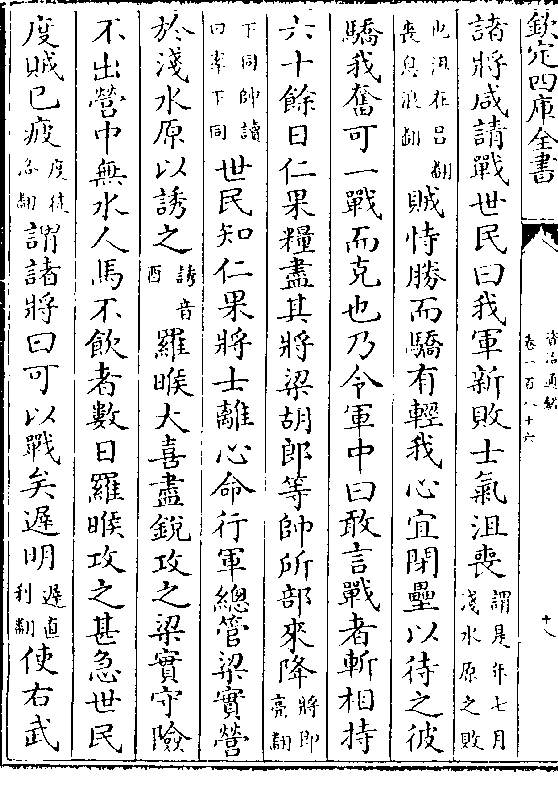 欽定四庫全書
資治通鑑
卷一百八十六
十八
諸將咸請戰世民曰我軍新敗士氣沮喪謂是年七月淺水原之敗
也沮在呂翻喪息浪翻賊恃勝而驕有輕我心宜閉壘以待之彼
驕我奮可一戰而克也乃令軍中曰敢言戰者斬相持
六十餘日仁果糧盡其將梁胡郎等帥所部來降將即亮翻
下同帥讀曰率下同世民知仁果將士離心命行軍總管梁實營
於淺水原以誘之誘音酉羅睺大喜盡鋭攻之梁實守險
不出營中無水人馬不飲者數日羅睺攻之甚急世民
度賊已疲度徒洛翻謂諸將曰可以戰矣遲明遲直利翻使右武